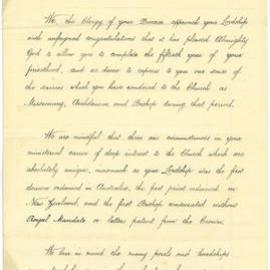 We, the Clergy of your Diocese approach your Lordship
with unfeigned congratulations that it has pleased Almighty
God to allow you to complete the fiftieth year of your
priesthood, and we desire to express to you our sense of
the services which you have rendered to the Church as
Missionary, Archdeacon and Bishop during that period.
We are mindful that there are circumstances in your
ministerial career of deep interest to the Church which are
absolutely unique, inasmuch as your Lordship was the first
deacon ordained in Australia, the first priest ordained in
New Zealand, and the first Bishop consecrated without
Royal Mandate or letters patent from the Crown.
We bear in mind the many perils and hardships